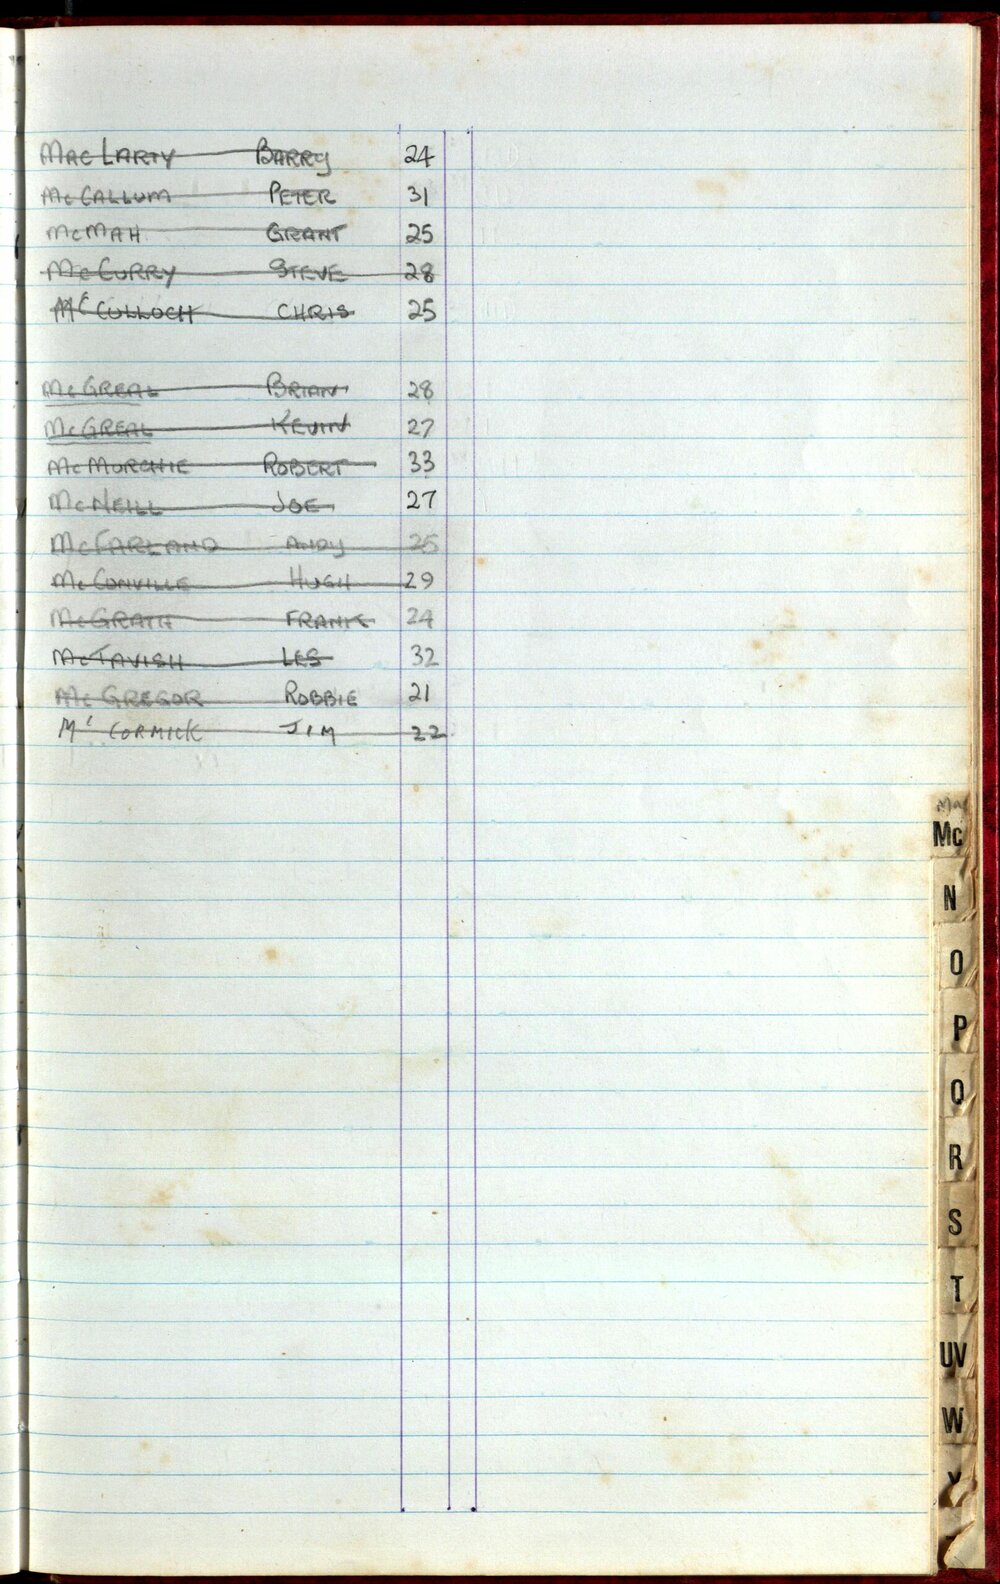 MacLarty Barry 24
McCallum Peter 31
McMah Grant 25
McCurry Steve 28
McCulloch Chris 25
McGreal Brian 28
McGreal Kevin 27
McMurchie Robert 33
McNeill Joe 27
McFarland Andy 26
McConville Hugh 29
McGrath Frank 24
McTavish Les 32
McGregor Robbie 21
McCormick Jim 22
Mac
Mc
N
O
P
Q
R
S
T
UV
W
Y